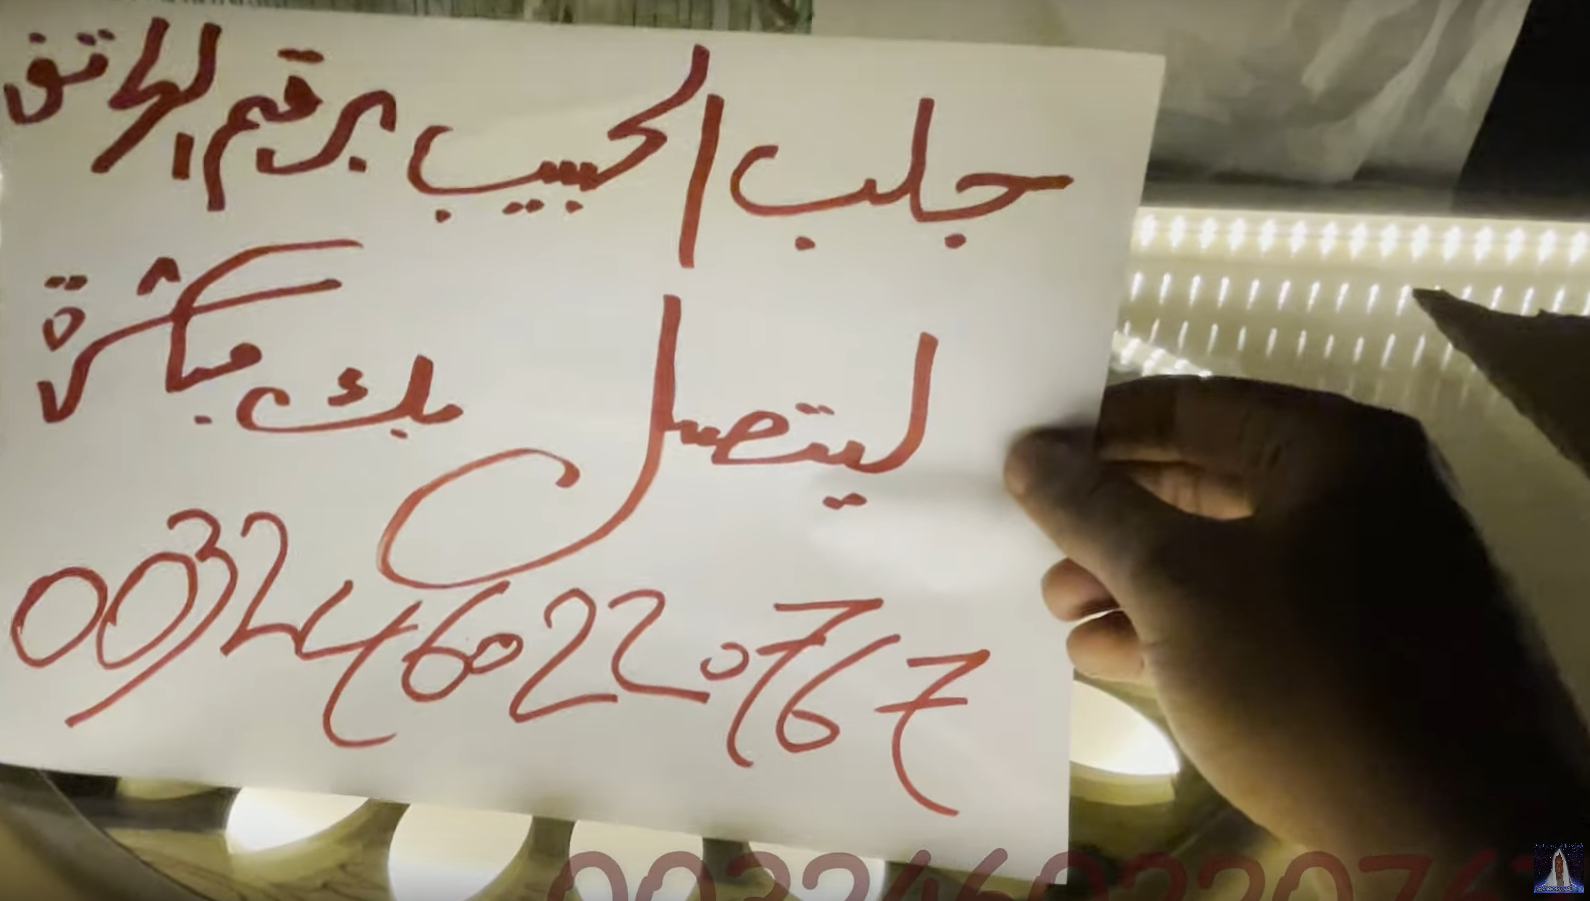 جلب الحبيب برقم الهاتف
ليتصل بك مباشرة
0032460220767
0032460220767